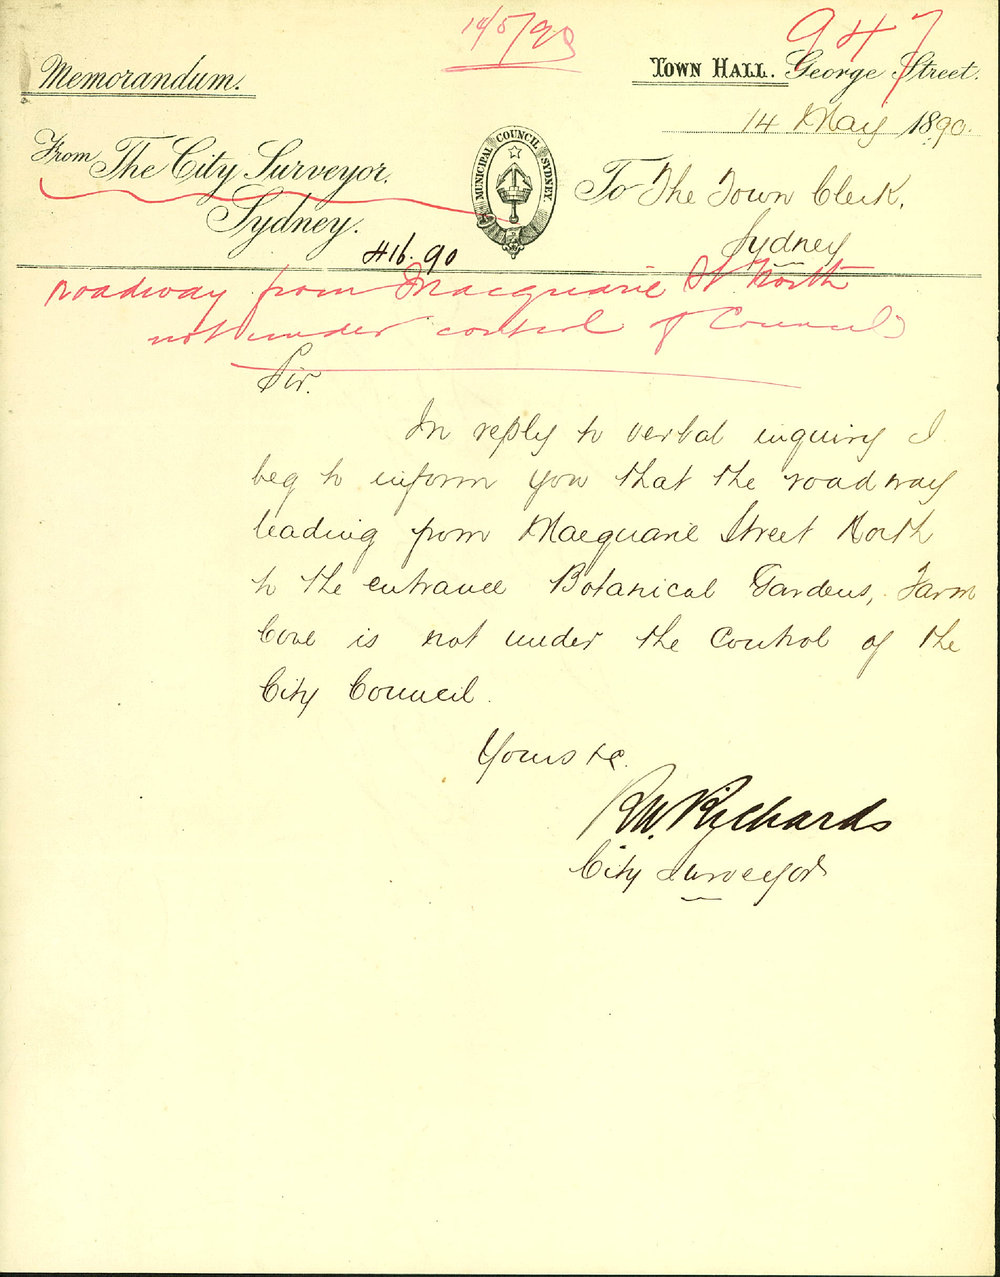 14/5/90
947
Memorandum.
TOWN HALL. George Street.
14 May 1890.
From The City Surveyor,
Sydney.
MUNICIPAL COUNCIL SYDNEY.
To The Town Clerk,
Sydney
416.90
roadway from Macquarie St North
not under control of Council
Sir.
In reply to verbal inquiry I
beg to inform you that the roadway
leading from Macquarie Street North
to the entrance Botanical Gardens, Farm
Cove is not under the control of the
City Council.
Yours &c.
R.W. Richards
City Surveyor